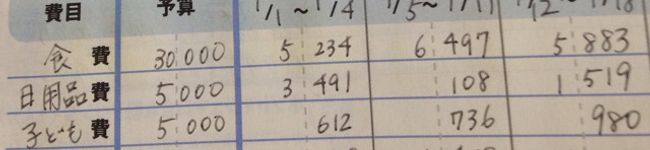 費目 予算 1/1～1/4 1/5～1/11
食費 30 000 5 234 6 497 5 883
日用品費 5 000 3 491 108 1 519
子ども費 5 000 612 736 980